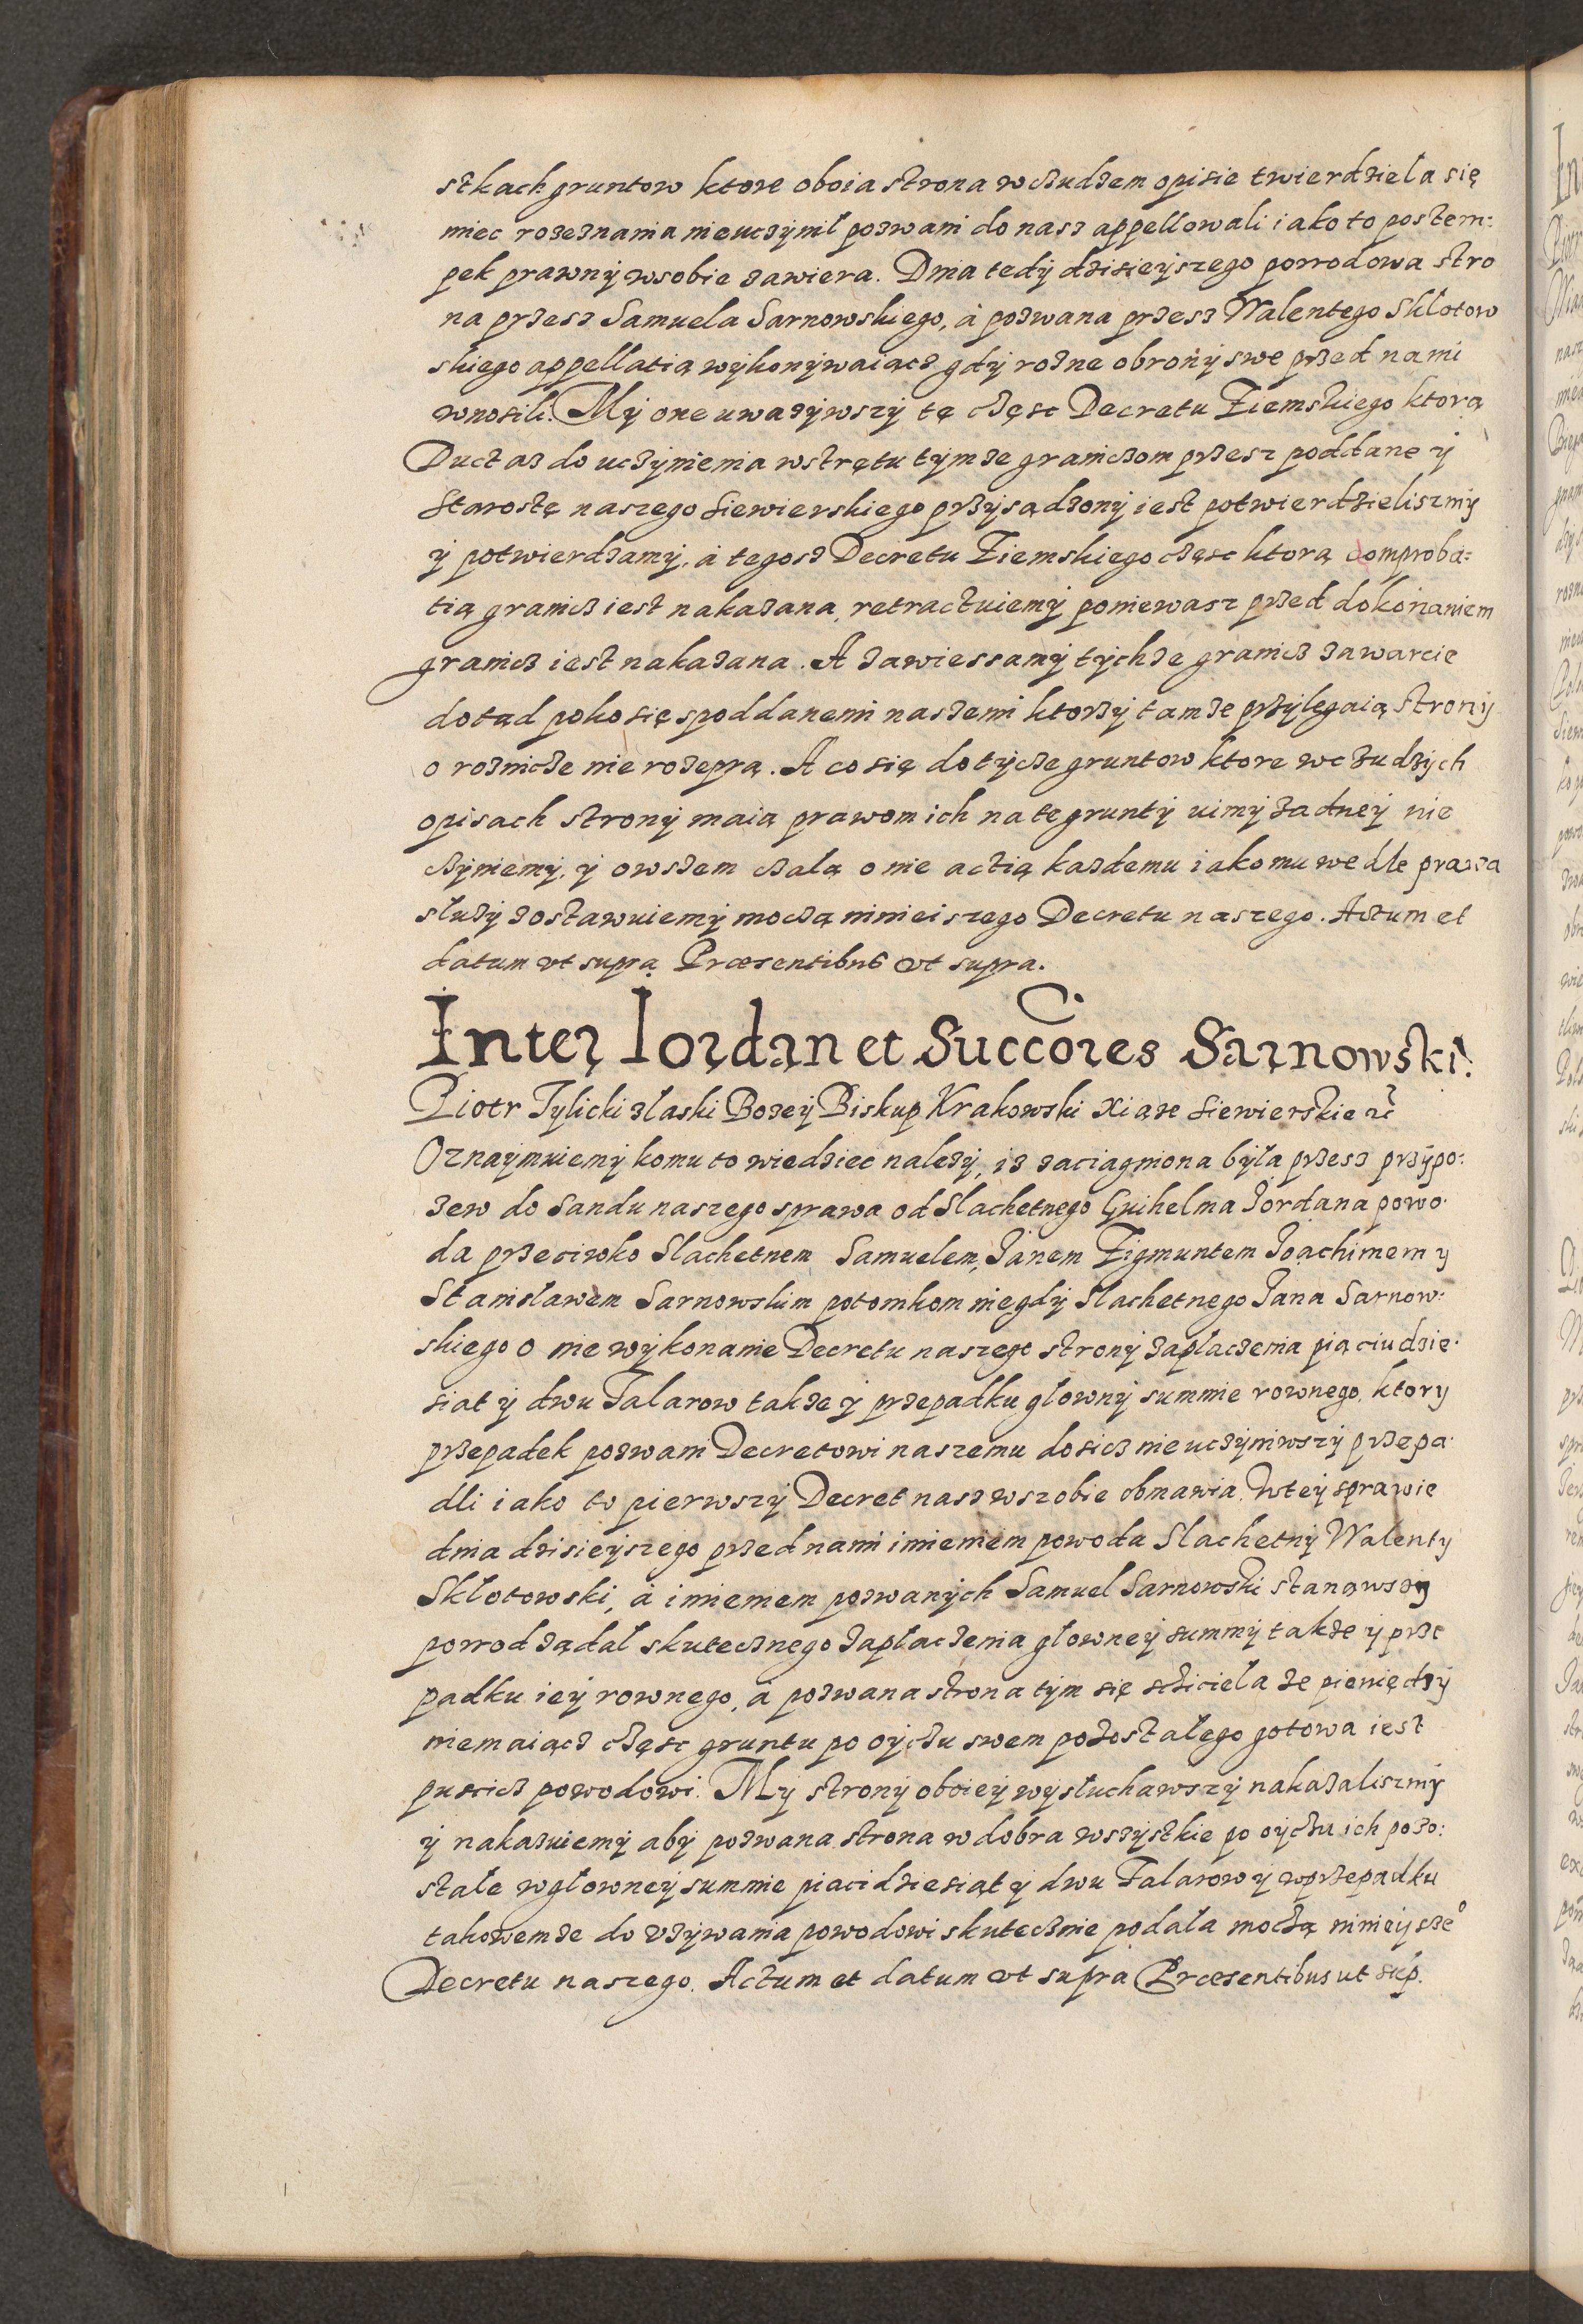 stkach gruntow ktore oboia strona w czudzem opisie twierdziela się
miec rozeznania nieuczynił pozwani do nasz appellowali i ako to postem:
pek prawny wsobie zawiera. Dnia tedy dzisieyszego powodowa stro
na przesz Samuela Sarnowskiego, á pozwana przesz Walentego Skłotow
skiego appellatią wykonywaiącz gdy rozne obrony swe przed nami
wnosili. My one uwazywszy tę częsc Decretu Ziemskiego ktorą
Duct az do uczynienia wstrętu tymze graniczom przesz poddane y
Starostę naszego Siewierskiego przysądzony iest potwierdzieliszmy
y potwierdzamy, á tegosz Decretu Ziemskiego częsc ktorą comproba:
tią granicz iest nakazana, retractuiemy poniewasz przed dokonaniem
granicz iest nakazana. A zawieszamy tychze granicz zawarcie
dotąd poko się spoddanemi naszemi ktorzy tamze przylegaią strony
o roznicze nie rozeprą. A co się dotycze gruntow ktore w czudzych
opisach strony maią prawom ich na te grunty uimy zadney nie
czyniemy, y owszem czałą o nie actią kazdemu iako mu wedle prawa
słuzy zostawuiemy moczą ninieiszego Decretu naszego. Actum et
datum vt supra Præsentibus vt supra.
Inter Iordan et Succores Sarnowski.
Piotr Tylicki złaski Bozey Biskup Krakowski Xiąze Siewierskie etc
Oznaymuiemy komu to wiedziec nalezy, iz zaciągniona była przesz przypo:
zew do Sandu naszego sprawa od Slachetnego Guihelma Jordana powo
da przeciwko Slachetnem Samuelem, Janem Zigmuntem Joachimem y
Stanisławem Sarnowskim potomkom niegdy Slachetnego Jana Sarnow:
skiego o nie wykonanie Decretu naszego strony zapłaczenia piąciudzie
siat y dwu Talarow takze y przepadku głowny summie rownego, ktory
przepadek pozwani Decretowi naszemu dosicz nie uczyniwszy przepa
dli iako to pierwszy Decret nasz wszobie obmawia. Wtey sprawie
dnia dzisieyszego przed nami imieniem powoda Slachetny Walenty
Skłotowski, á imieniem pozwanych Samuel Sarnowski stanąwszy
powod ządał skutecznego zapłaczenia głowney summy takze y prze
padku iey rownego, á pozwana strona tym się sczicieła ze pieniędzy
niemaiącz częsc gruntu po oyczu swem pozostałego gotowa iest
puscicz powodowi. My strony oboiey wysłuchawszy nakazaliszmy
y nakazuiemy aby pozwana strona w dobra wszystkie po oyczu ich pozo:
stałe w głowney summie piacidziesiąt y dwu Talarow y w przepadku
takowemze do vzywania powodowi skutecznie podała moczą ninieysze°
Decretu naszego. Actum et datum vt supra Præsentibus ut sup.